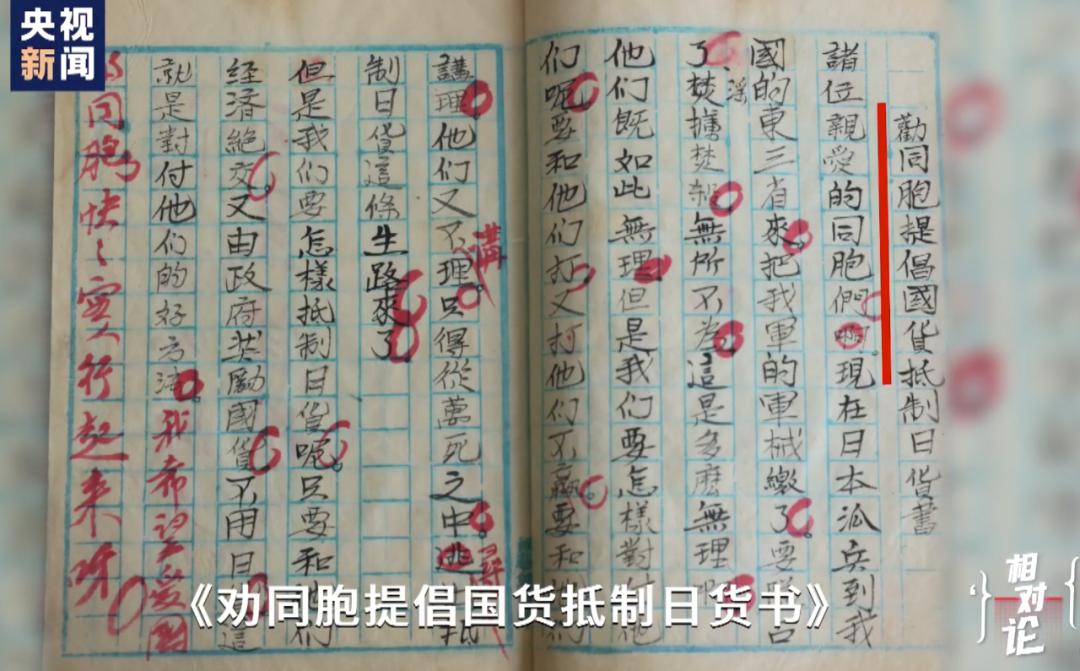 央视
新闻
勸同胞提倡國貨抵制日貨書
諸位親愛的同胞們啊現在日本派兵到我
國的東三省來把我軍的軍械繳了要
淫
了、焚擄焚殺無所不為這是多麼無理
他们既如此無理但是我们要怎樣對付他
们呢要和他们打又打他们不贏要和他们
講理他们又不理只得從萬死之中
講
尋
抵
制日貨這條生路來了
但是我们要怎樣抵制日貨呢。只要和他们
経済絶交。又由政府奖勵國貨不用日貨這
就是對付他们的好方法。我希望愛國
的同胞快々實行起来呀
《劝同胞提倡国货抵制日货书》
相对论